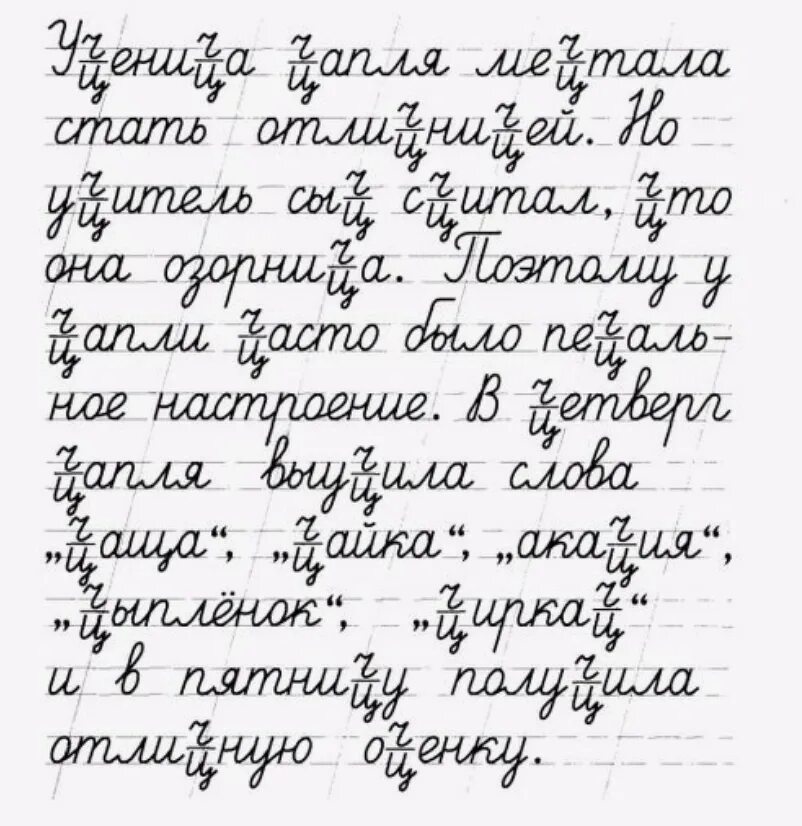 Уч/ценич/ца ч/цапля меч/цтала
стать отлич/цнич/цей. Но
уч/цитель сыч/ц сч/цитал, ч/цто
она озорнич/ца. Поэтому у
ч/цапли ч/цасто было печ/цаль-
ное настроение. В ч/цетверг
ч/цапля выуч/цила слова
„ч/цаща“, „ч/цайка“, „акач/ция“,
„ч/цыплёнок“, „ч/циркач/ц“
и в пятнич/цу получ/цила
отлич/цную оч/ценку.